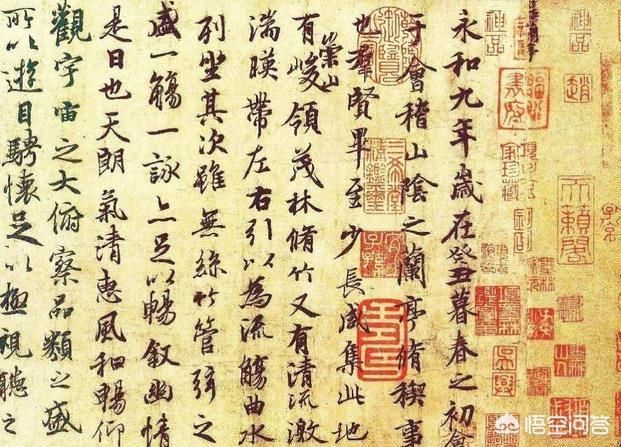 神品
趙
天籟閣
神品
永和九年歲在癸丑暮春之初會
于會稽山陰之蘭亭脩稧事
也羣賢畢至少長咸集此地
有崇山峻領茂林脩竹又有清流激
湍暎帶左右引以為流觴曲水
列坐其次雖無絲竹管弦之
盛一觴一詠亦足以暢敘幽情
是日也天朗氣清惠風和暢仰
觀宇宙之大俯察品類之盛
所以遊目騁懷足以極視聽之
悟空问答